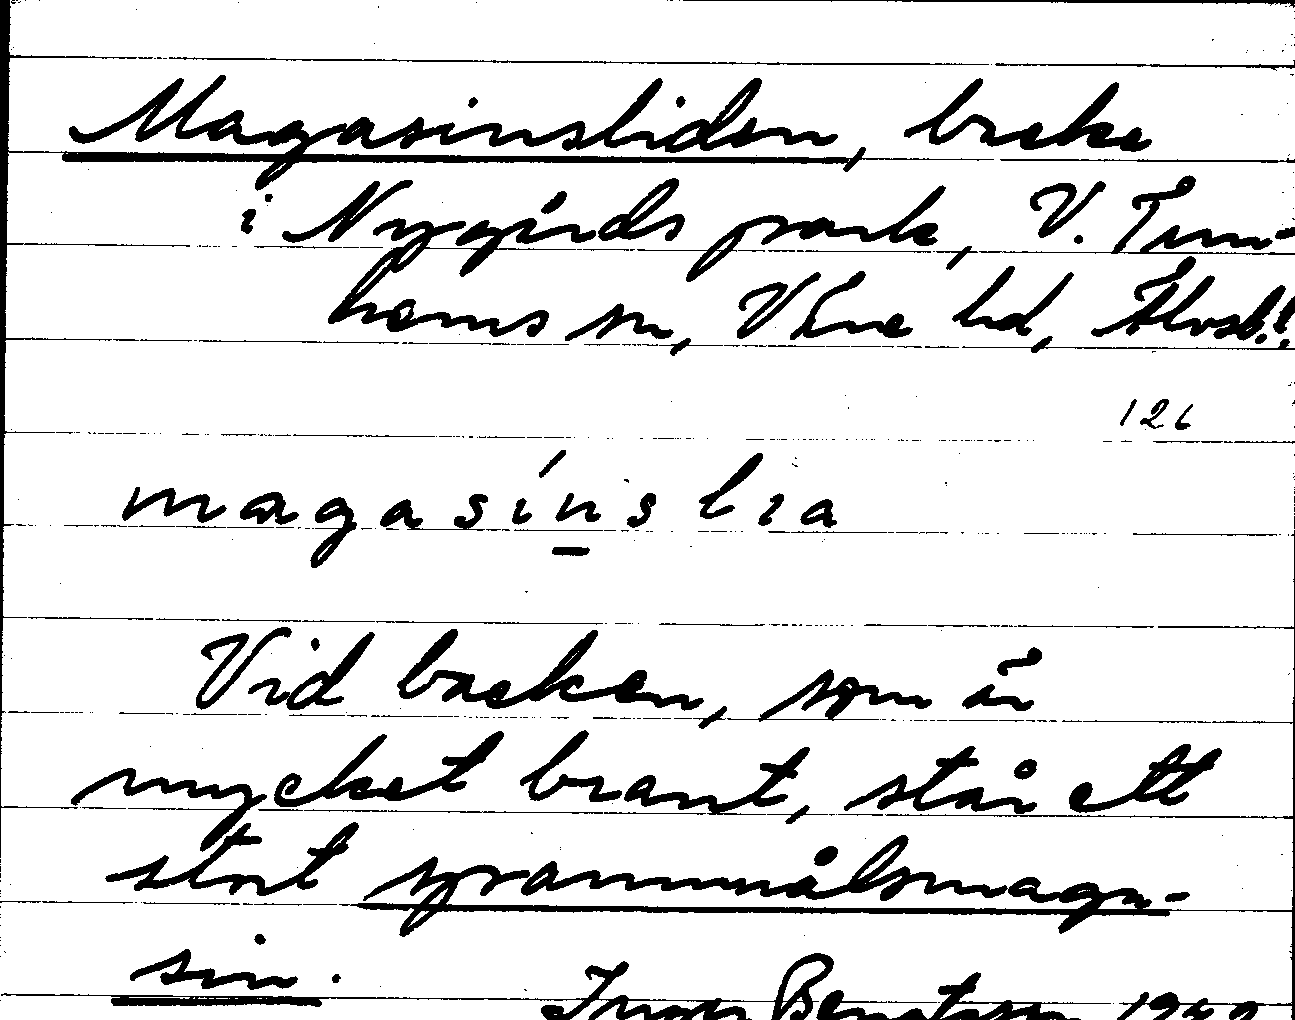 Magasinsliden, backe
i Nygårds park, V. Tun-
hems sn, Väne hd, Älvsb.!
126
magasínslia
Vid backen, som är
mycket brant, står ett
stort spannmålsmaga-
sin.
Bengtsson 19